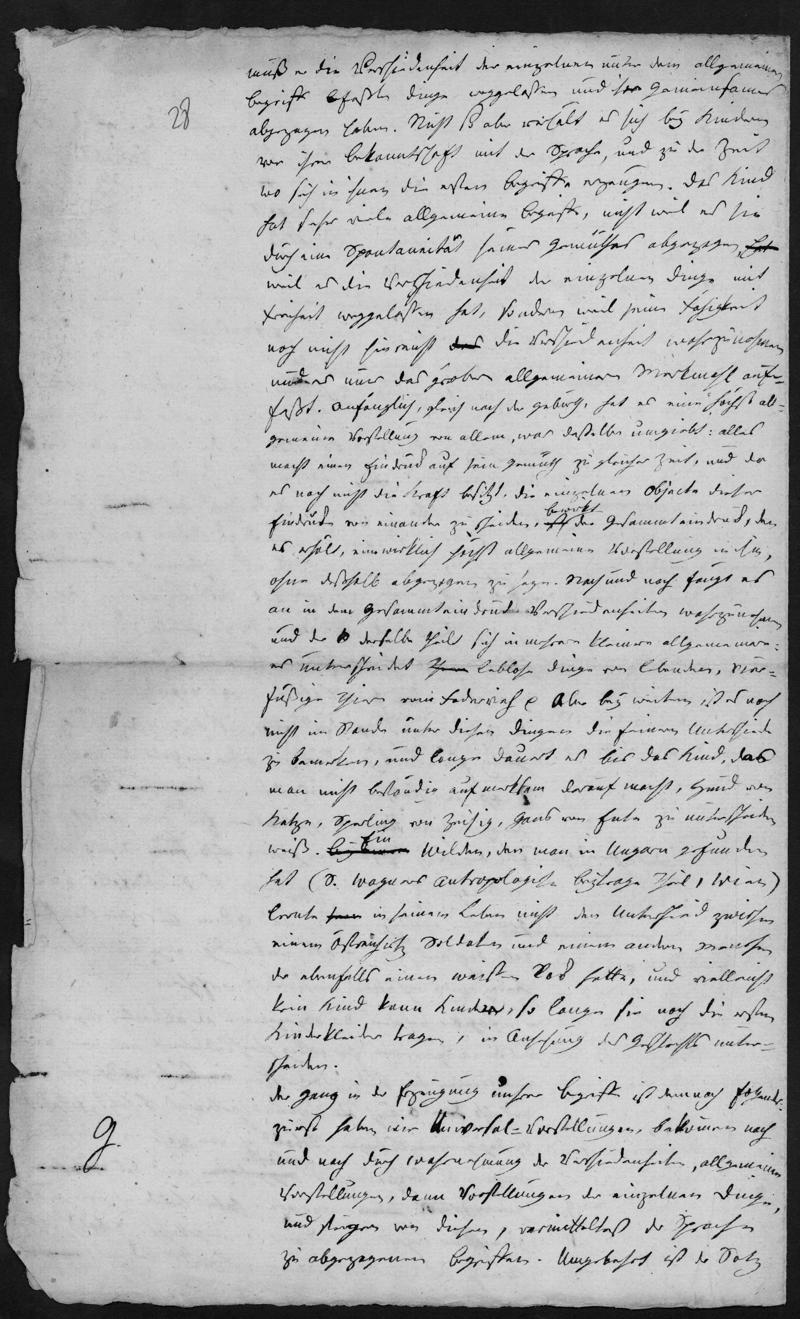 28
muß er die Verschiedenheit der einzelnen unter dem allgemeinen
Begriffe befaßten Dinge weggelassen und das Gemeinsame
abgezogen haben. Nicht so aber verhält es sich bey Kindern
vor ihrer Bekanntschaft mit der Sprache, und zu der Zeit
wo sich in ihnen die ersten Begriffe erzeugen. Das Kind
hat sehr viele allgemeine Begriffe, nicht weil es sie
durch eine Spontaneität seines Gemüthes abgezogen, hat
weil es die Verschiedenheit der einzelnen Dinge mit
Freiheit weggelassen hat, sondern weil seine Fähigkeit
noch nicht hinreicht das die Verschiedenheit wahrzunehmen
und es nur das grobe allgemeinere Merkmahl auf-
faßt. Anfänglich, gleich nach der Geburth, hat es eine höchst all-
gemeine Vorstellung von allem, was dasselbe umgiebt: alles
macht einen Eindruck auf sein Gemüth zu gleicher Zeit, und da
es noch nicht die Kraft besitzt, die einzelnen Objecte dieser
Eindrücke von einander zu scheiden, bewirkt der Gesammteindruck, den
es erhält, eine wirklich höchst allgemeine Vorstellung in ihm,
ohne deßhalb abgezogen zu seyn. Nach und nach fängt es
an in dem Gesammteindruck Verschiedenheiten wahrzunehmen
und der derselbe theilt sich in mehrere kleinere allgemeinere:
es unterscheidet leblose Dinge von lebenden, vier-
füßige Thiere vom Federvieh &c. Aber bey weitem ist es noch
nicht im Stande unter diesen Dingen die feinern Unterschiede
zu bemerken, und lange dauert es bis das Kind, das
man nicht beständig aufmerksam darauf macht, Hund von
Katze, Sperling von Zeisig, Gans von Ente zu unterscheiden
weiß. Ein Wilder, den man in Ungarn gefunden
hat (S. Wagners Antropologische Beytrage Theil 1, Wien)
lernte in seinem Leben nicht den Unterschied zwischen
einem Östreichischen Soldaten und einem andern Menschen
der ebenfalls einen weißen Rock hatte, und vielleicht
kein Kind kann Kinder, so lange sie noch die ersten
Kinderkleider tragen, in Ansehung des Geschlechts unter-
scheiden.
Der Gang in der Erzeugung unserer Begriffe ist demnach folgender:
zuerst haben wir Universal-Vorstellungen, bekommen nach
und nach durch Wahrnehmung der Verschiedenheiten, allgemeine
Vorstellungen, dann Vorstellungen der einzelnen Dinge,
und steigen von diesen, vermittelst der Sprache
zu abgezogenen Begriffen. Umgekehrt ist der Satz
g.